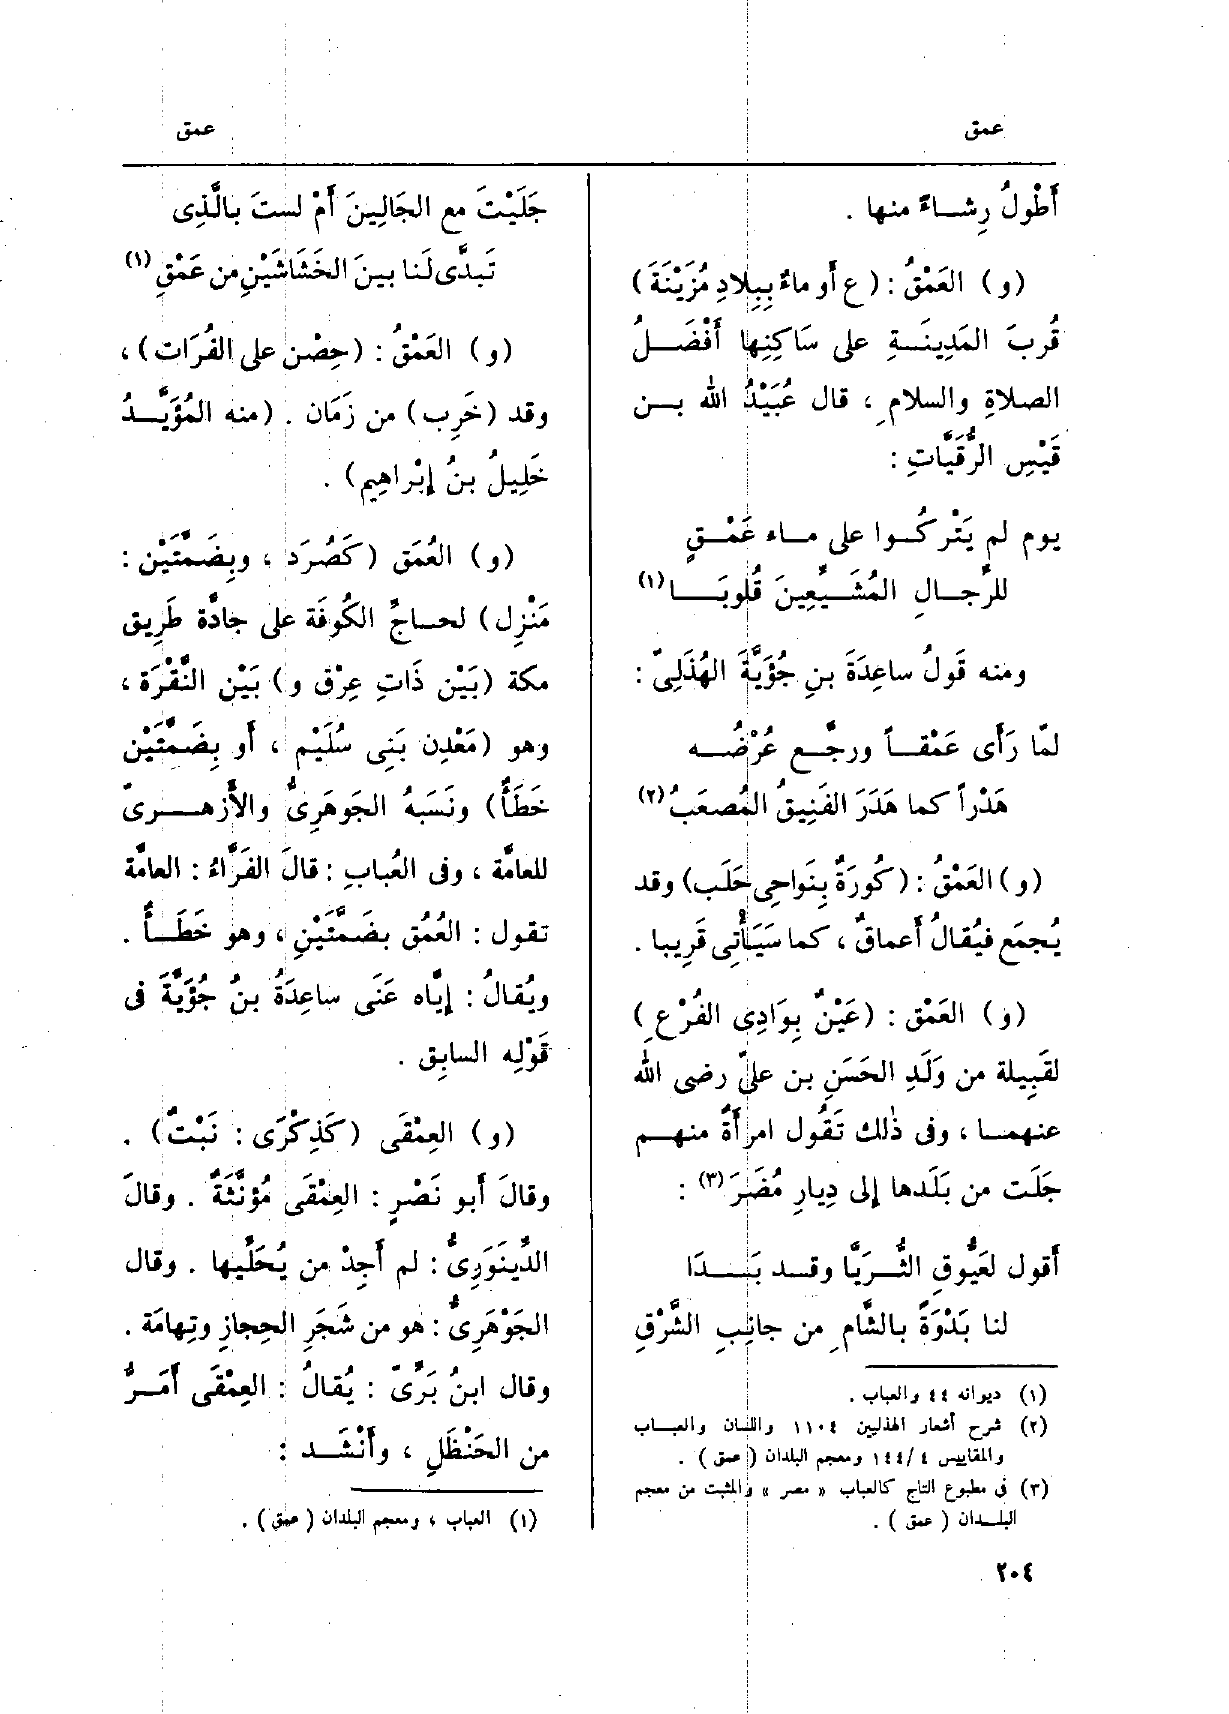 عمق
عمق
أَطْولُ رِشاءً منها .
(و) العَمْقُ : (ع أَو ماءٌ بِبِلادِ مُزَيْنَةَ)
قُربَ المَدِينَةِ على سَاكِنِها أَفْضَلُ
الصلاةِ والسلامِ ، قال عُبَيْدُ الله بن
قَيْسِ الرُّقَيَّاتِ :
يوم لم يَتْركُوا على ماء عَمْقٍ
للرِّجالِ المُشَيِّعِينَ قُلوبَا (١)
ومنه قَولُ ساعِدَةَ بنِ جُؤَيَّةَ الهُذَلِىّ :
لمّا رَأَى عَمْقاً ورجَّع عُرْضُه
هَدْراً كما هَدَرَ الفَنِيقُ المُصعَبُ (٢)
(و) العَمْقُ : (كُورَةٌ بِنَواحِى حَلَب) وقد
يُجمَع فيُقالُ أَعماقٌ ، كما سَيَأْتِى قَرِيبا .
(و) العَمْق : (عَيْنٌ بِوَادِى الفُرْعِ)
لقَبِيلة من وَلَدِ الحَسَنِ بن علىّ رضى الله
عنهما ، وفى ذٰلك تَقُول امرأَةٌ منهم
جَلَت من بَلَدها إِلى دِيارِ مُضَرَ (٣) :
أَقول لعَيُّوقِ الثُّرَيَّا وقد بَدَا
لنا بَدْوَةً بالشَّامِ من جانِبِ الشَّرْقِ
(١) ديوانه ٤٤ والعباب .
(٢) شرح أشعار الهذليين ١١٠٤ واللسان والعباب
والمقاييس ٤ /١٤٤ ومعجم البلدان (عمق) .
(٣) فى مطبوع التاج كالعباب « مصر » والمثبت من معجم
البلدان (عمق) .
٢٠٤
جَلَيْتَ مع الجَالِينَ أَمْ لستَ بالَّذِى
تَبدَّى لَنا بينَ الخَشَاشَيْنِ من عَمْقِ (١)
(و) العَمْقُ : (حِصْن على الفُرَات) ،
وقد (خَرِب) من زَمَان . (منه المُؤَيَّدُ
خَلِيلُ بنُ إِبْراهِيم) .
(و) العُمَق (كَصُرَد ، وبِضَمَّتَيْن :
مَنْزِل) لحاجِّ الكُوفَة على جادَّة طَرِيق
مكة (بَيْن ذَاتِ عِرْق و) بَيْن النَّقْرَة ،
وهو (مَعْدِن بَنِى سُلَيْم ، أَو بِضَمَّتَيْن
خَطَأٌ) ونَسَبَهُ الجَوهَرِىُّ والأَزهرىّ
للعامَّة ، وفى العُبابِ : قالَ الفَرَّاءُ : العامّة
تقول : العُمُق بضَمَّتَيْنِ ، وهو خَطَأٌ .
ويُقالُ : إِيَّاه عَنَى ساعِدَةُ بنُ جُؤَيَّةَ فى
قَوْلِه السابِق .
(و) العِمْقَى (كَذِكْرَى : نَبْتٌ) .
وقالَ أَبو نَصْرٍ : العِمْقَى مُؤنَّثَةٌ . وقالَ
الدِّينَوَرِىُّ : لم أَجِدْ من يُحَلِّيها . وقال
الجَوْهَرِىُّ : هو من شَجَرِ الحِجازِ وتِهامَة .
وقال ابنُ بَرِّىّ : يُقالُ : العِمْقَى أَمَرُّ
من الحَنْظَلِ ، وأَنْشَد :
(١) العباب ، ومعجم البلدان (عمق) .